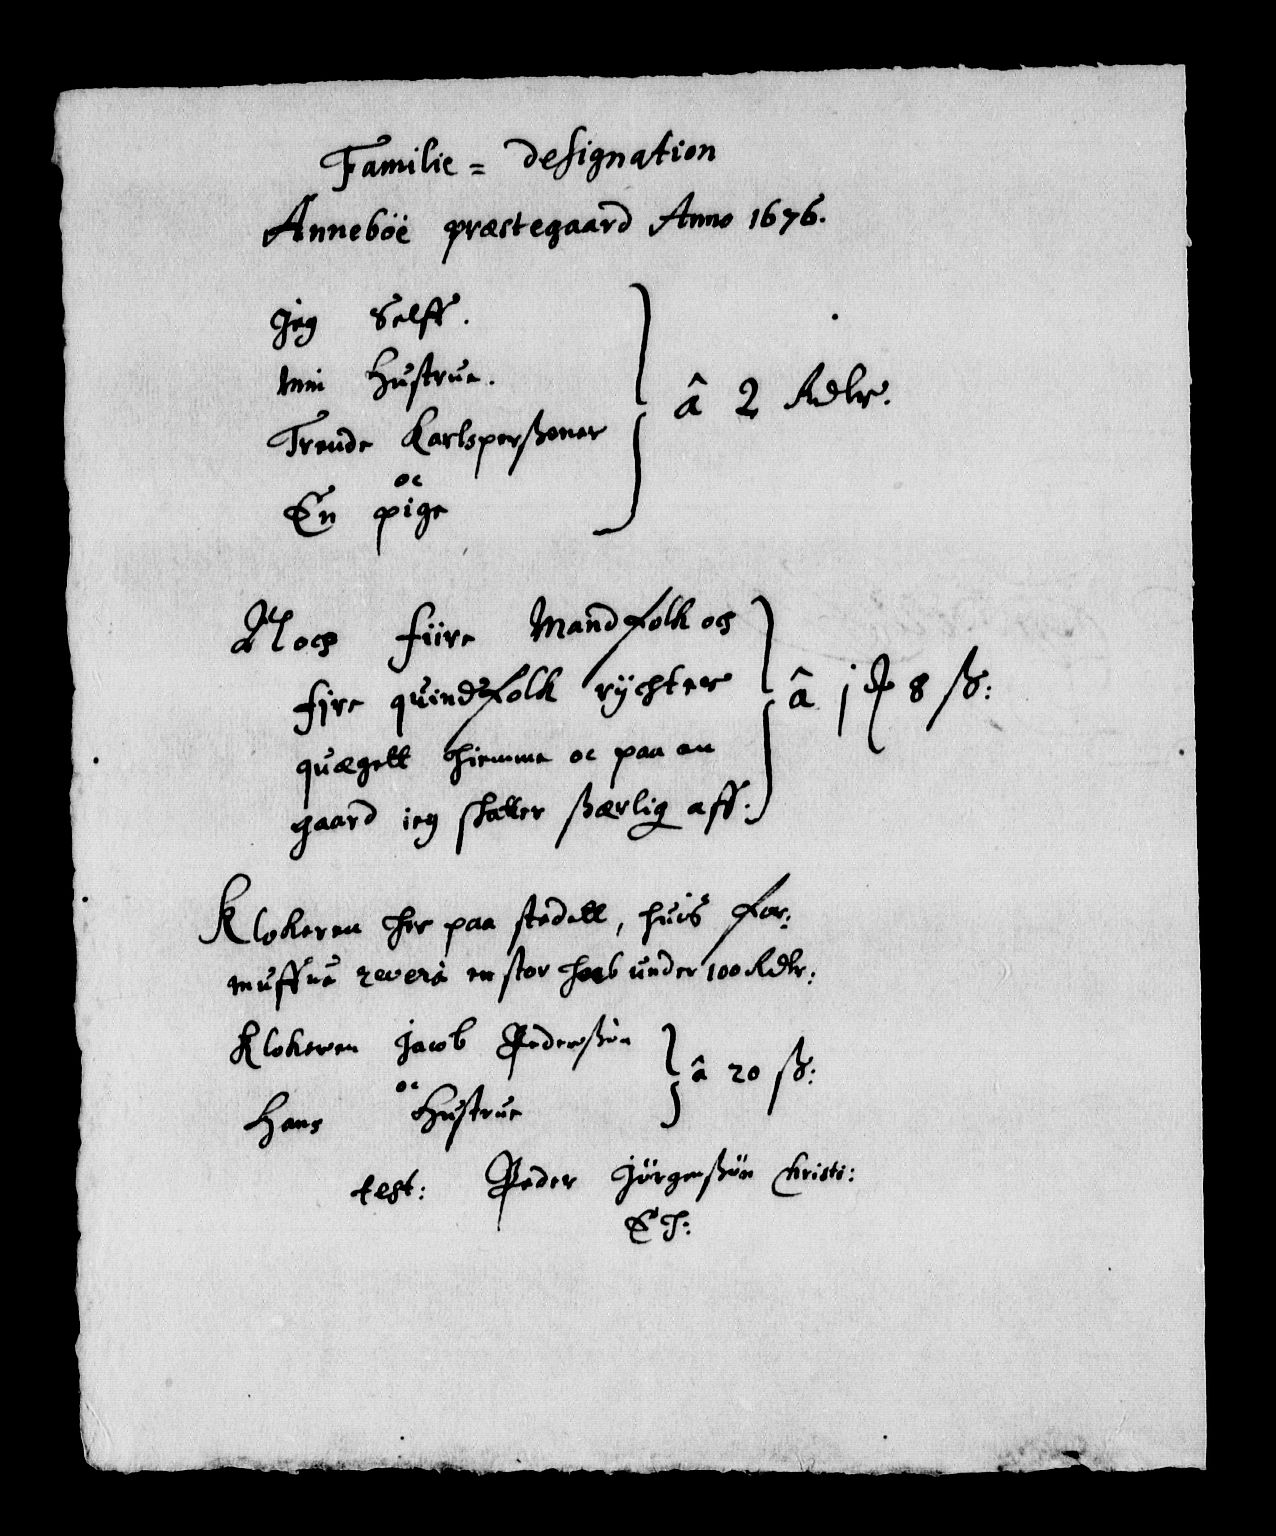 Familie = designation
Anneböe præstegaard Anno 1676.
Jeg Selff.
min Hustrue.
Trende Karlsperßoner
oc
En pige
â 2 Rdlr.
Noch fiire Mandfolk och
fire quindfolk rÿchter
quægett hiemme oc paa en
gaard ieg skatter særlig aff.
â j 8 ß:
Klokeren her paa stedett, huis for:
muffue revera en stor hob under 100 Rdlr:
Klokeren Jacob Pederßön
oc
Hans Hustrue
â 20 ß:
test: Peder Jörgenßön Christi: